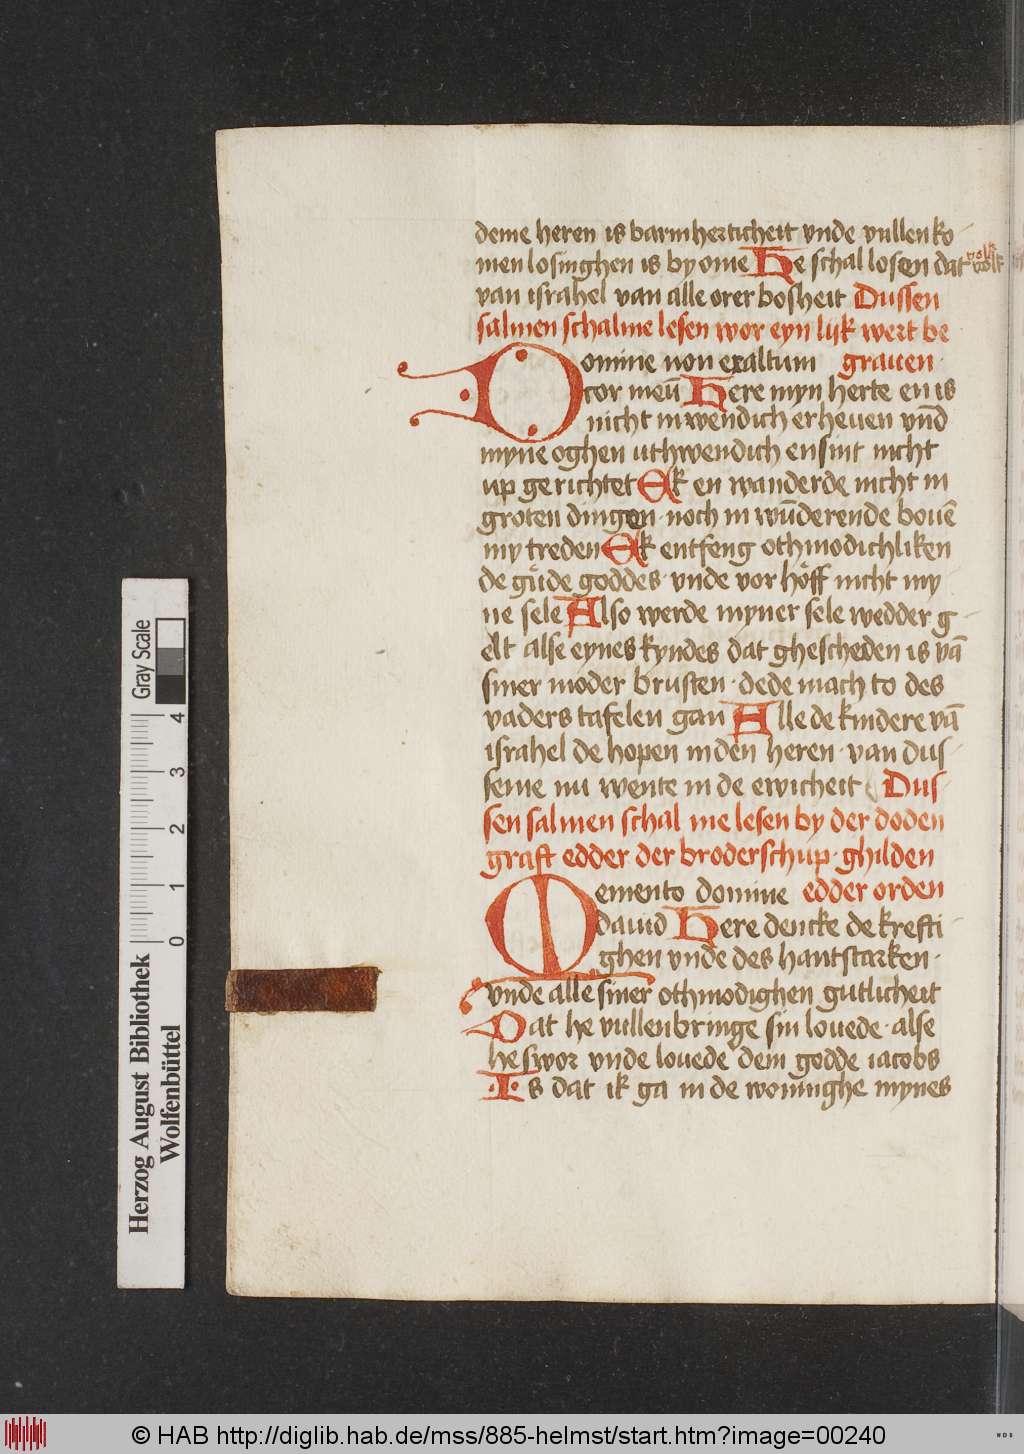 deme heren is barmherticheit vnde vullenko
men losinghen is by ome He schal losen dat volk volk
van israhel van alle orer bosheit Dussen
salmen schalme lesen wor eyn lijk wert be
Domine non exaltum grauen
cor meū Here myn herte en is
nicht inwendich erheuen vn̄d
myne oghen uthwendich en sint nicht
up gerichtet Ek en wanderde nicht in
groten dingen noch in wūderende bouē
my treden Ek entfeng othmodichliken
de gůde goddes vnde vor höff nicht my
ne sele Also werde myner sele wedder g
elt alse eynes kyndes dat ghescheden is vā
siner moder brusten dede mach to des
vaders tafelen gan Alle de kindere vā
israhel de hopen in den heren van dus
seme nu wente in de ewicheit Dus
sen salmen schal me lesen by der doden
graft edder der broderschup ghilden
Memento domine edder orden
dauid Here dencke de krefti
ghen vnde des hantstarken
vnde alle siner othmodighen gutlicheit
Dat he vullenbringe sin louede alse
he swor vnde louede dem godde iacobs
Is dat ik ga in de woninghe mynes
Gray Scale
4
3
2
1
0
Herzog August Bibliothek
Wolfenbüttel
© HAB http://diglib.hab.de/mss/885-helmst/start.htm?image=00240